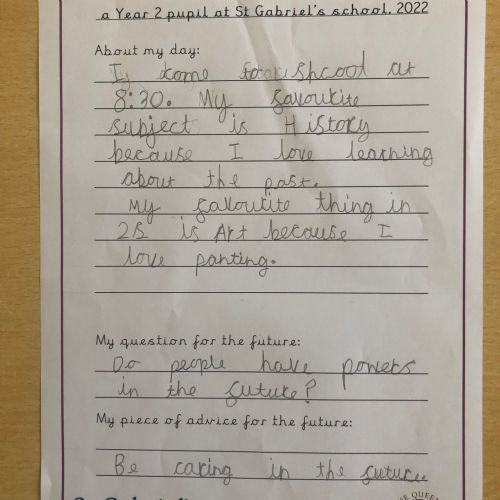 a Year 2 pupil at St Gabriel's school, 2022
About my day:
I come to shcool at
8:30. My favourite
subject is History
because I love learning
about the past.
My favourite thing in
2S is Art because I
love panting.
My question for the future:
Do people have powers
in the future?
My piece of advice for the future:
Be caring in the future
QUEE